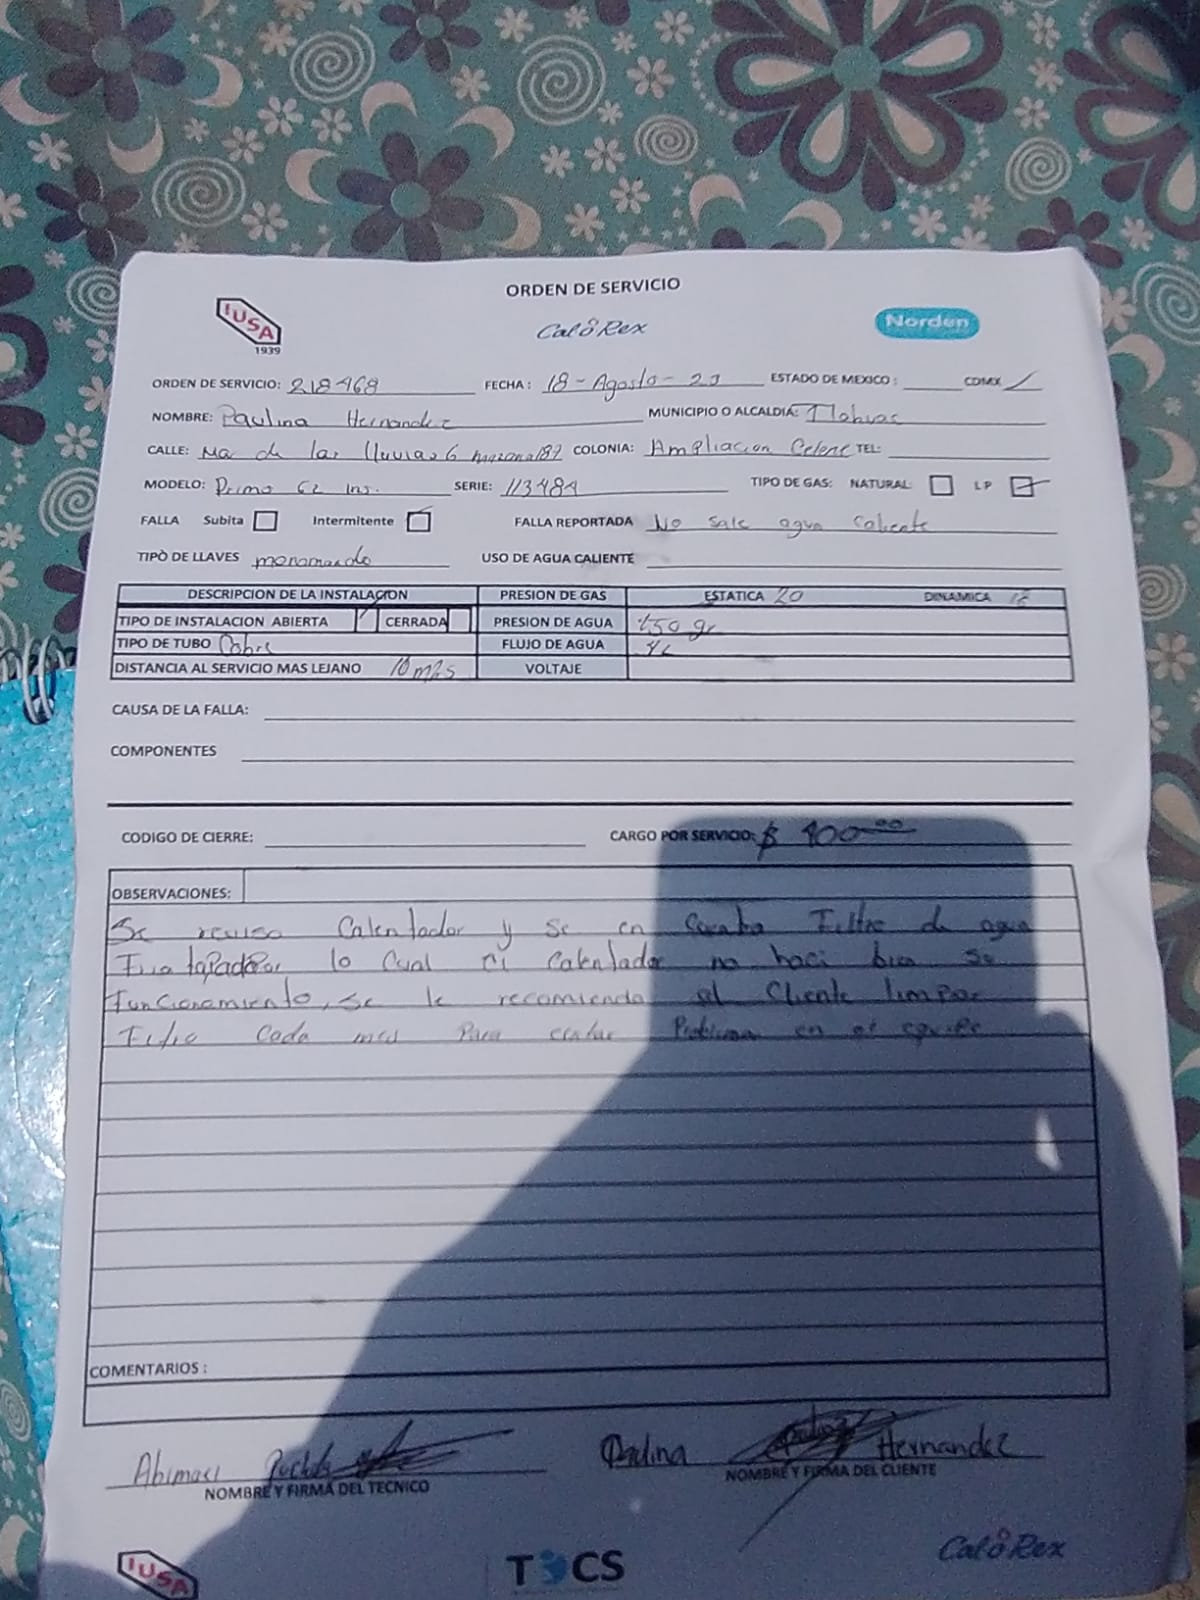 ORDEN DE SERVICIO
IUSA
1939
CaloRex
Norden
ORDEN DE SERVICIO: 218468 FECHA: 18-Agosto-23 ESTADO DE MEXICO: CDMX
NOMBRE: Paulina Hernandez MUNICIPIO O ALCALDIA: Tlahuac
CALLE: Mar de las lluvias 6 manzana 187 COLONIA: Ampliacion Selene TEL:
MODELO: Primo 62 Ins. SERIE: 113484 TIPO DE GAS: NATURAL LP
FALLA Subita Intermitente FALLA REPORTADA No sale agua caliente
TIPÒ DE LLAVES monomando USO DE AGUA CALIENTE
DESCRIPCION DE LA INSTALACION PRESION DE GAS ESTATICA 20 DINAMICA
TIPO DE INSTALACION ABIERTA CERRADA PRESION DE AGUA 450 gr
TIPO DE TUBO Cobre FLUJO DE AGUA
DISTANCIA AL SERVICIO MAS LEJANO 10 mts VOLTAJE
CAUSA DE LA FALLA:
COMPONENTES
CODIGO DE CIERRE: CARGO POR SERVICIO: $
OBSERVACIONES:
Se reviso Calentador y se en Filtro de agua
lo cual el calentador no haci bien su
Funcionamiento, se le recomienda al Cliente limpiar
Filtro Cada mes Para evitar Problema en el equipo
COMENTARIOS :
Paulina Hernandez
NOMBRE Y FIRMA DEL TECNICO
NOMBRE Y FIRMA DEL CLIENTE
IUSA
TOCS
CaloRex